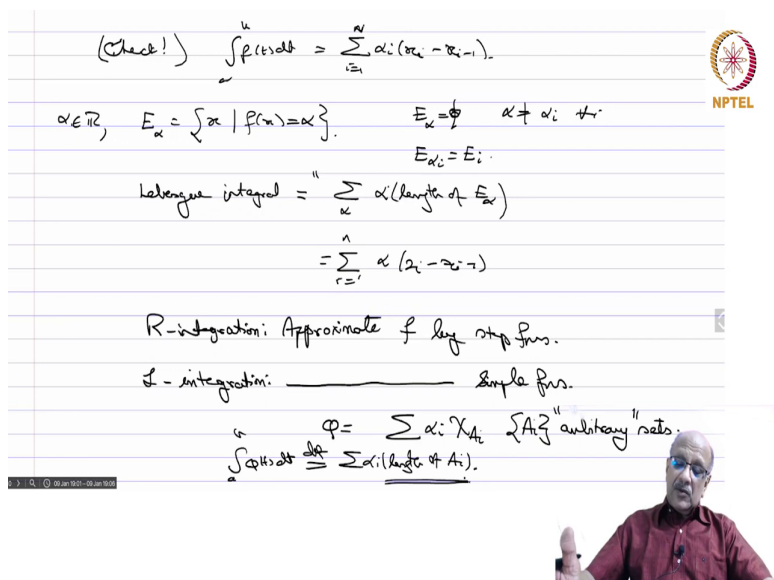 (Check!) ∫_a^b f(t)dt = Σ_{i=1}^N αi(xi − xi−1).
NPTEL
α∈ℝ, E_α = {x | f(x)=α}. E_α = φ α ≠ αi ∀i
E_αi = Ei.
Lebesgue integral = " Σ_α α(length of E_α)
= Σ_{i=1}^n α (xi − xi−1)
R-integration: Approximate f by step fns.
L-integration: ———————— simple fns.
φ = Σ αi χ_Ai {Ai} "arbitrary" sets.
∫_a^b φ(t)dt def= Σ αi(length of Ai).
09 Jan 19:01 - 09 Jan 19:06